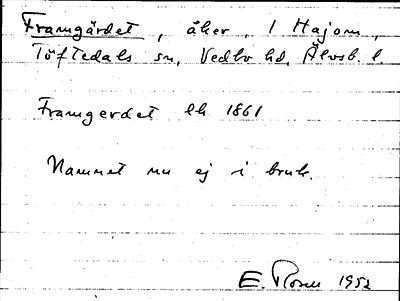 Framgärdet, åker, 1 Hajom,
Töftedals sn, Vedbo hd, Älvsb. l.
Framgerdet lh 1861
Namnet nu ej i bruk.
E. Rosen 1952